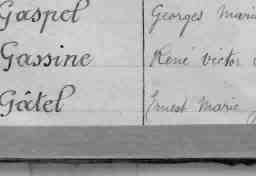 Gaspel Georges Marie
Gassine René victor
Gâtel Ernest Marie